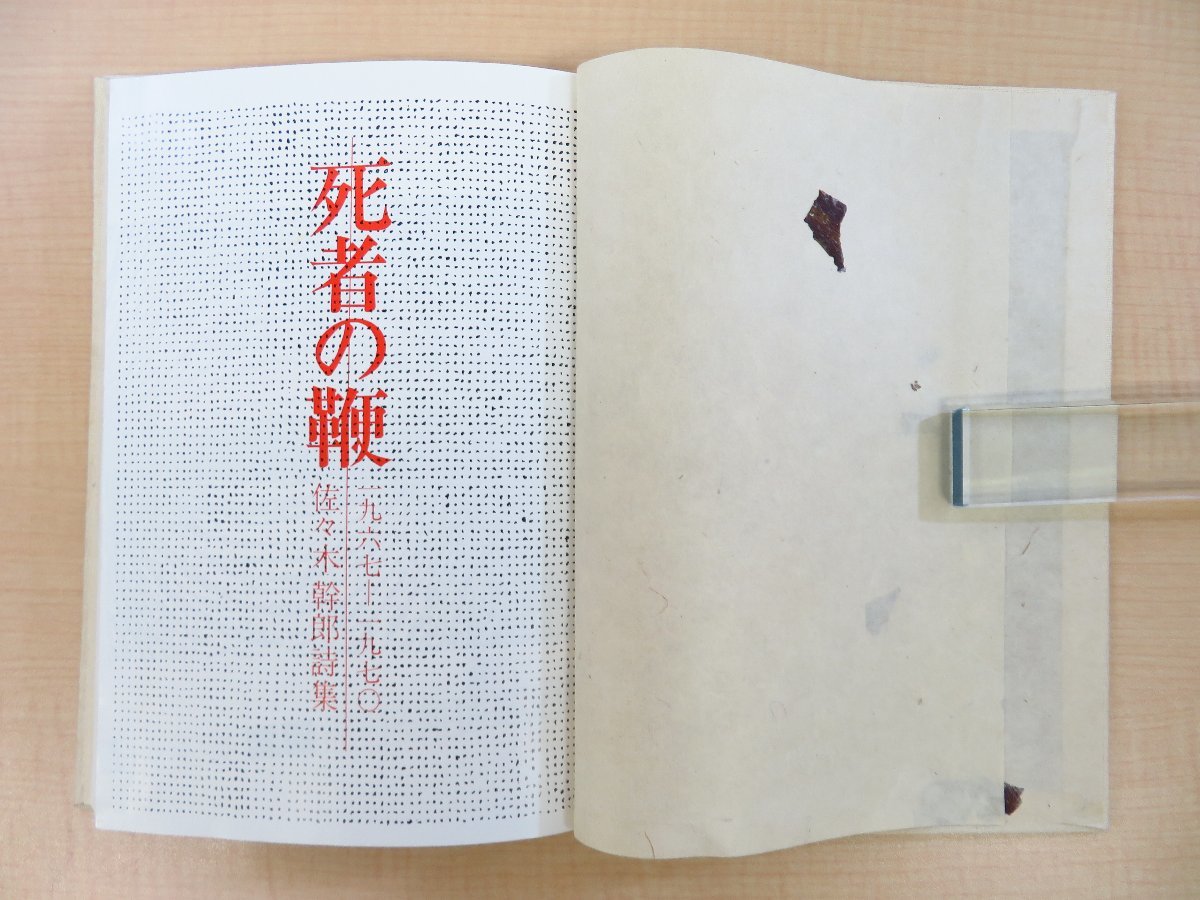 死者の鞭
一九六七―一九七〇
佐々木幹郎詩集